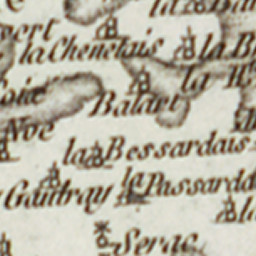 la Bar
vert
la Chenelais
la B
la H
Balart
Noe
la Bessardais
Gautray
la Passardd
la
Serac